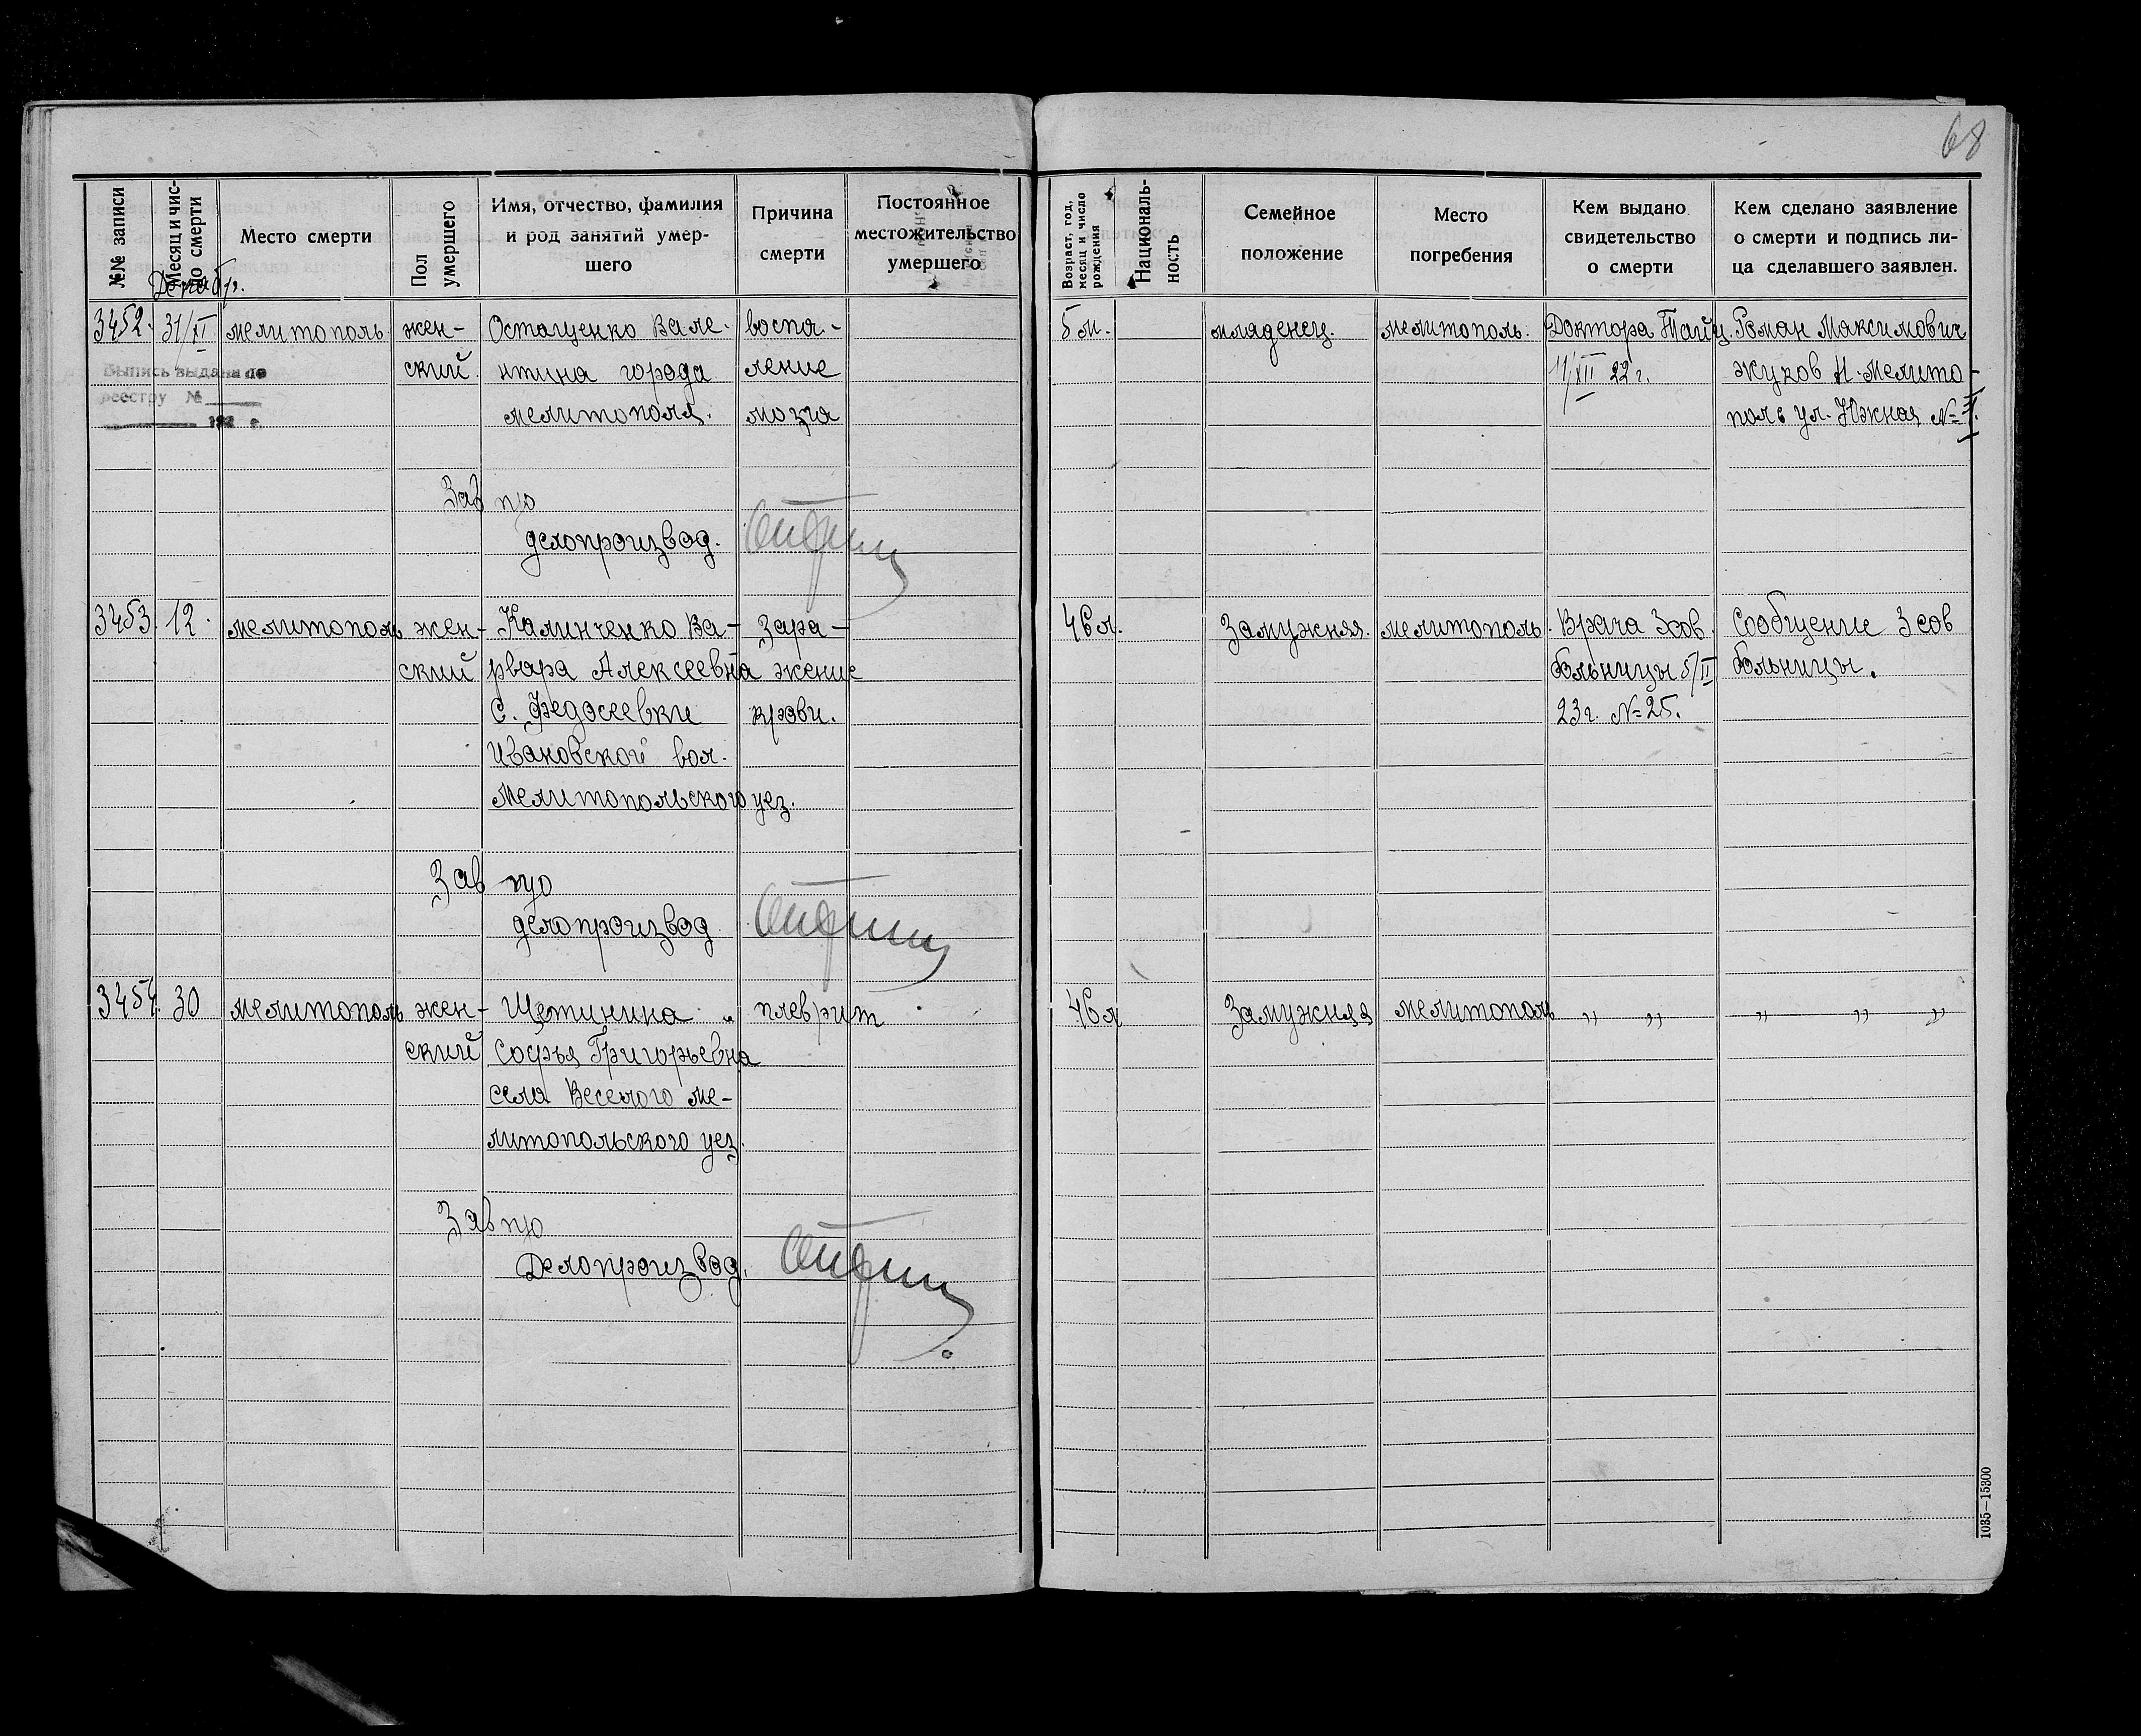 68
№№ записи
Месяц и число смерти
Декабр.
Место смерти
Пол умершего
Имя, отчество, фамилия
и род занятий умер-
шего
Причина
смерти
Постоянное
местожительство
умершего
Возраст, год,
месяц и число
рождения
Националь-
ность
Семейное
положение
Место
погребения
Кем выдано
свидетельство
о смерти
Кем сделано заявление
о смерти и подпись ли-
ца сделавшего заявлен.
3452. 31/XI мелитополь жен- Остащенко Вале- воспа- 5 м. младенец. мелитополь. Доктора Тайц. Роман Максимович
ский нтина города ление 11/XII 22 г. Жуков Н-Мелито-
Выпись выдана по
реестру №
192 г.
мелитополя. мозга поль ул. Южная №
Зав п/о
делопроизвод.
3453. 12. мелитополь жен- Калинченко Ва- Зара- 46 л. Замужняя. мелитополь. Врача 3 сов. Сообщение 3 сов
ский рвара Алексеевна жение больницы 5/II больницы.
с. Федосеевки крови. 23 г. № 25.
Ивановской вол.
Мелитопольского уез.
Зав п/о
делопроизвод
3454. 30 мелитополь жен- Щетинина плеврит 46 л Замужняя мелитополь „ „ „ „ „
ский Софья Григорьевна
села Веселого ме-
литопольского уез.
Зав п/о
Делопроизвод.
1035—15300